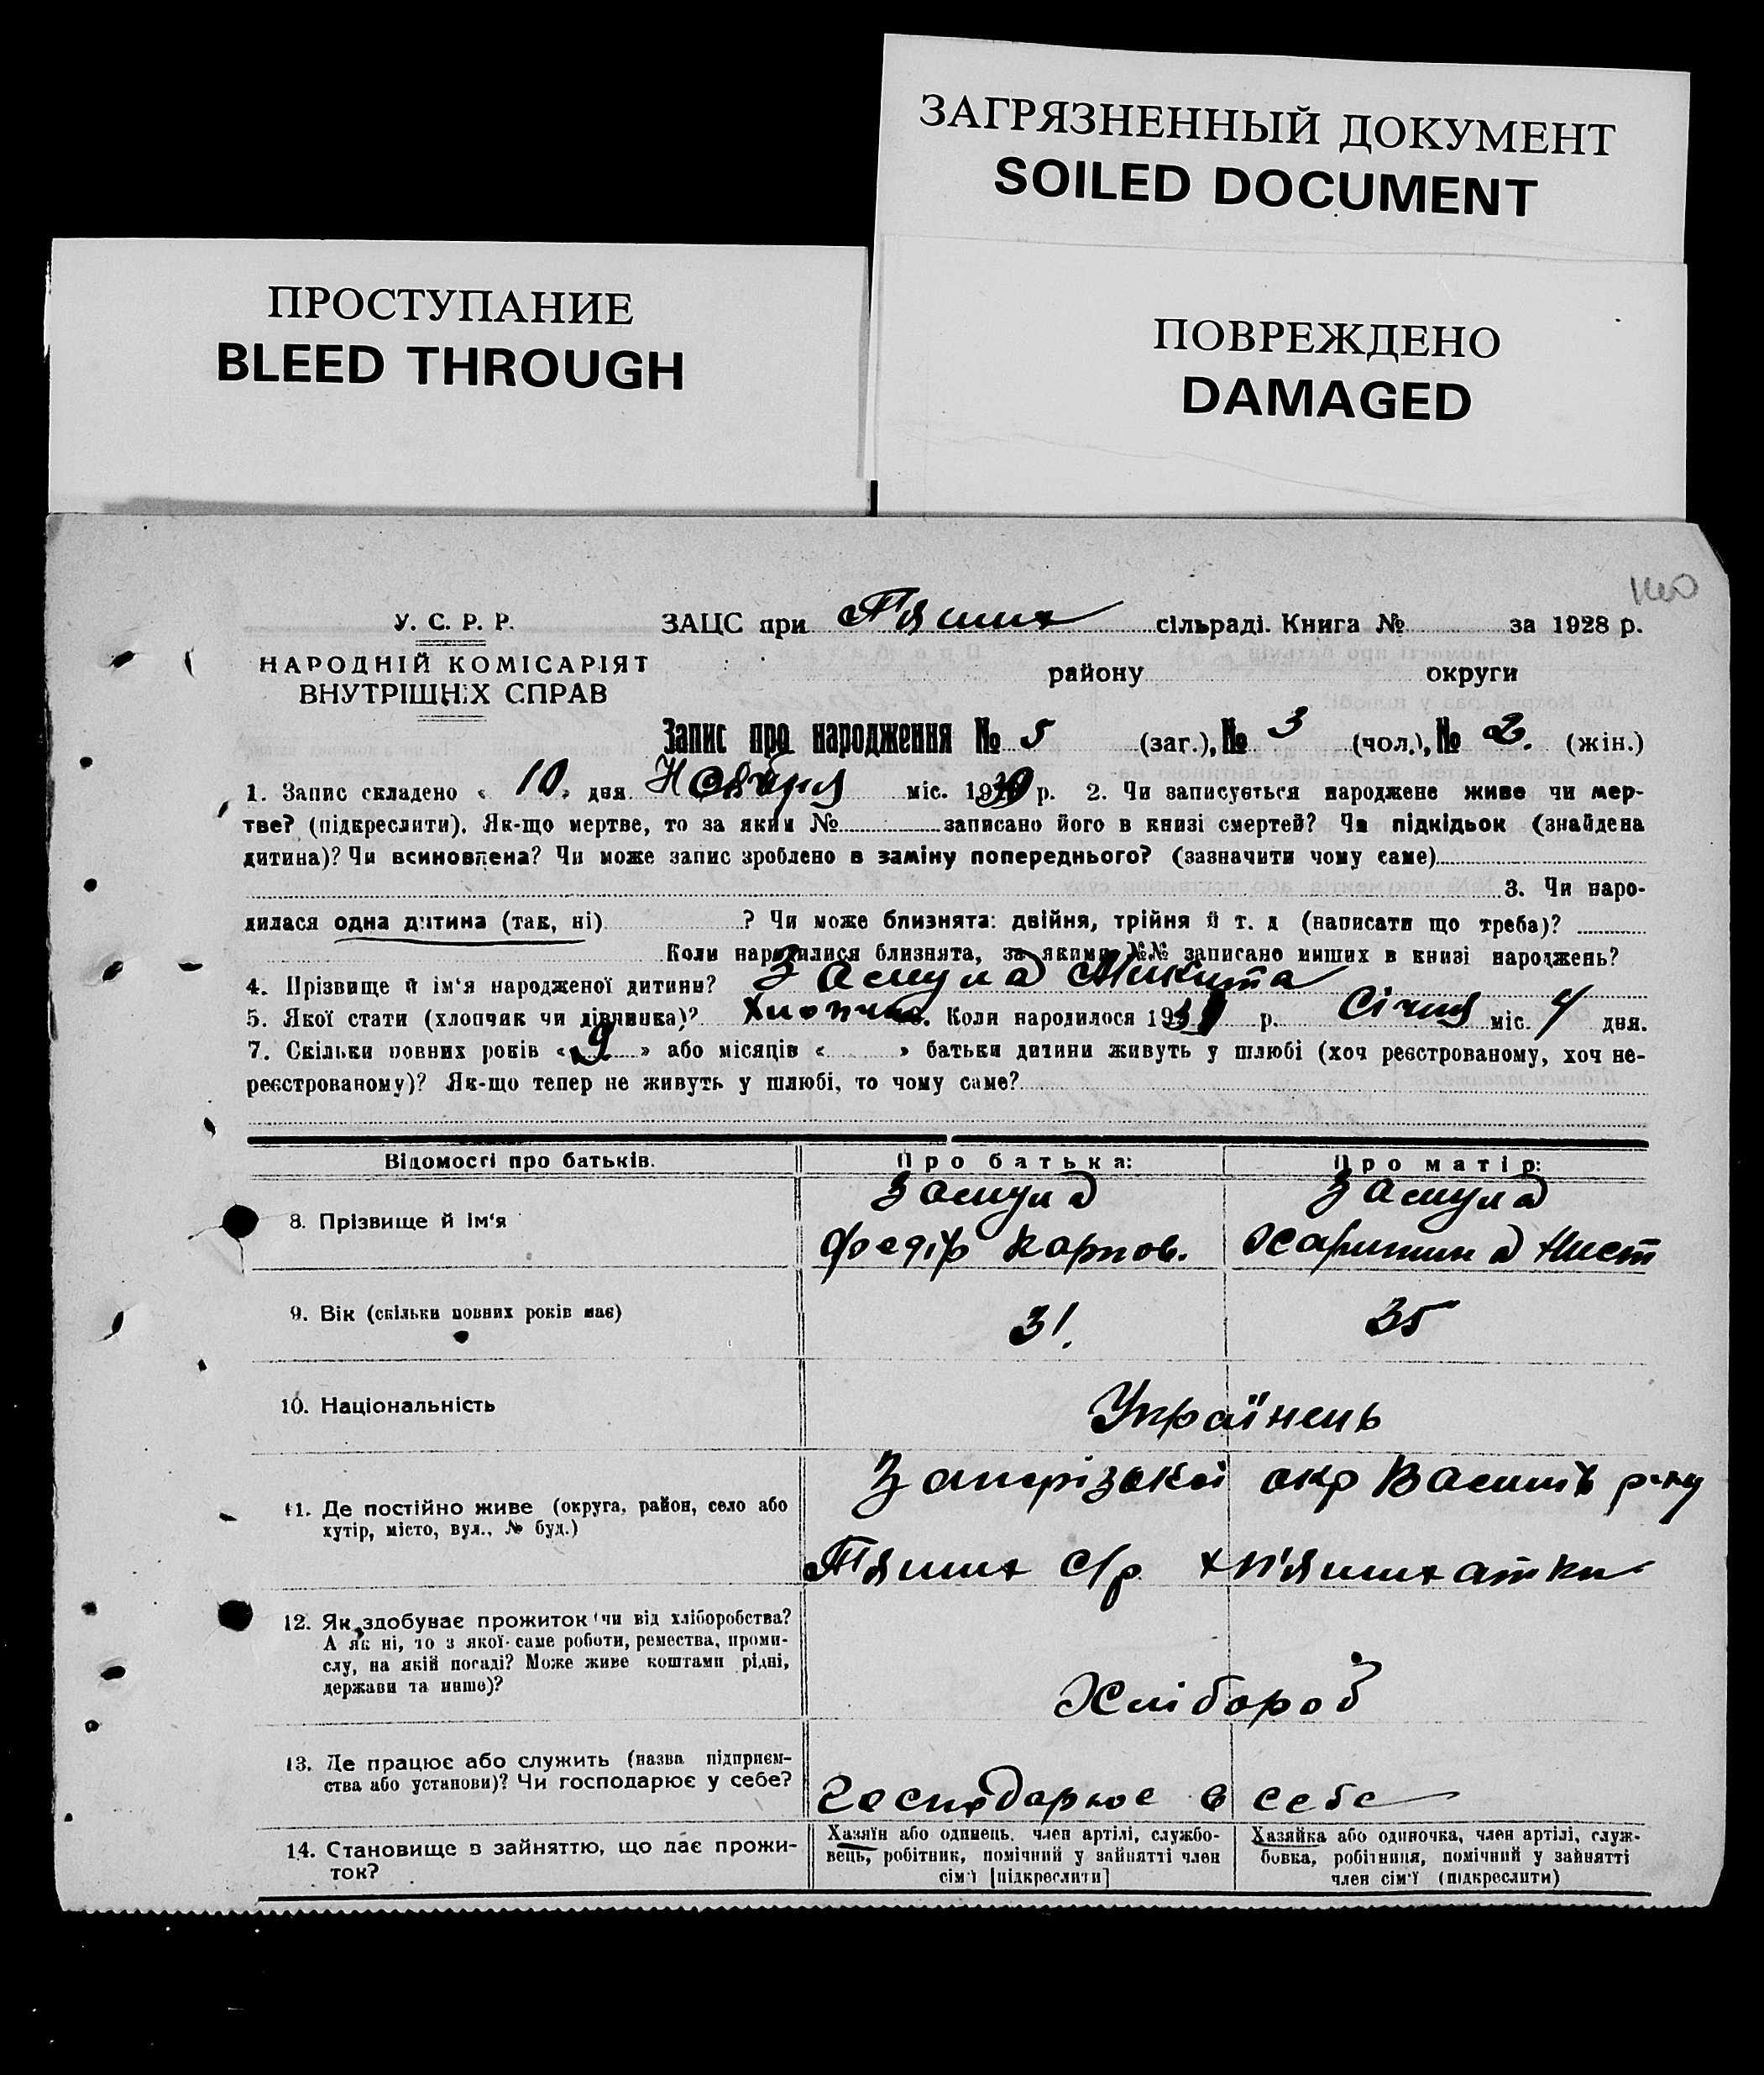 ЗАГРЯЗНЕННЫЙ ДОКУМЕНТ
SOILED DOCUMENT
ПРОСТУПАНИЕ
BLEED THROUGH
ПОВРЕЖДЕНО
DAMAGED
140
У. С. Р. Р.
НАРОДНІЙ КОМІСАРІЯТ
ВНУТРІШНІХ СПРАВ
ЗАЦС при Пяших сільраді. Книга № за 1928 р.
району округи
Запис про народження № 5 (заг.), № 3 (чол.), № 2. (жін.)
1. Запис складено « 10 » дня Ноября міс. 19 р. 2. Чи записується народжене живе чи мер-
тве? (підкреслити). Як-що мертве, то за яким № записано його в книзі смертей? Чи підкідьок (знайдена
дитина)? Чи всиновлена? Чи може запис зроблено в заміну попереднього? (зазначити чому саме)
3. Чи наро-
дилася одна дитина (так, ні) ? Чи може близнята: двійня, трійня й т. д (написати що треба)?
Коли народилися близнята, за якими №№ записано инших в книзі народжень?
4. Прізвище й ім'я народженої дитини? Засуула Микита
5. Якої стати (хлопчик чи дівчинка)? Хлопчик. Коли народилося 19 р. Січня міс. 4 дня.
7. Скільки повних років « 9 » або місяців « » батьки дитини живуть у шлюбі (хоч реєстрованому, хоч не-
реєстрованому)? Як-що тепер не живуть у шлюбі, то чому саме?
Відомості про батьків. Про батька: Про матір:
8. Прізвище й ім'я
Засуула Засуула
Федір Карпов. Харитина Нист
9. Вік (скільки повних років має) 31. 35
10. Національність Українець
11. Де постійно живе (округа, район, село або
хутір, місто, вул., № буд.)
Запорізької окр Василів р-ну
Пяших с/р х П'яшихатки
12. Як здобуває прожиток чи від хліборобства?
А як ні, то з якої саме роботи, ремества, проми-
слу, на якій посаді? Може живе коштами рідні,
держави та инше)?
Хлібороб
13. Де працює або служить (назва підприєм-
ства або установи)? Чи господарює у себе?
Господарює в себе
14. Становище в зайняттю, що дає прожи-
ток?
Хазяїн або одинець, член артілі, службо-
вець, робітник, помічний у зайнятті член
сім'ї [підкреслити]
Хазяйка або одиночка, член артілі, служ-
бовка, робітниця, помічний у зайнятті
член сім'ї (підкреслити)